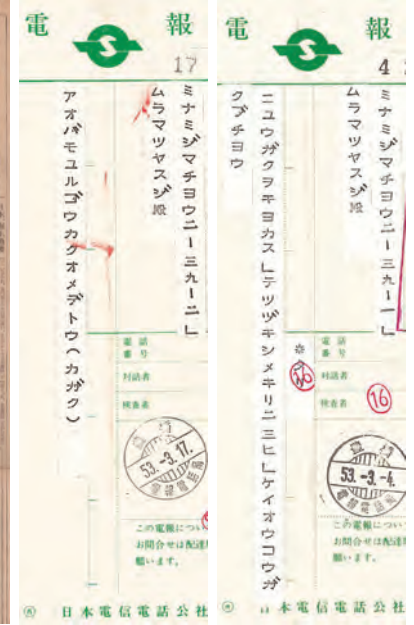 電報
17
ミナミジマチヨウ二ー三九ー二」
ムラマツヤスジ殿
アオバモユルゴウカクオメデトウ(カガク)
電話番号
対話者
検査者
53.-3.17.
この電報につい
お問合せは配達
願います。
日本電信電話公社
電報
4
ミナミジマチヨウ二ー三九ー一」
ムラマツヤスジ殿
ニユウガクヲキヨカス」テツヅキシメキリ二三ヒ」ケイオウコウガ
クブチヨウ
電話番号
対話者
検査者
16
16
53.-3.-4.
この電報につい
お問合せは配達
願います。
日本電信電話公社